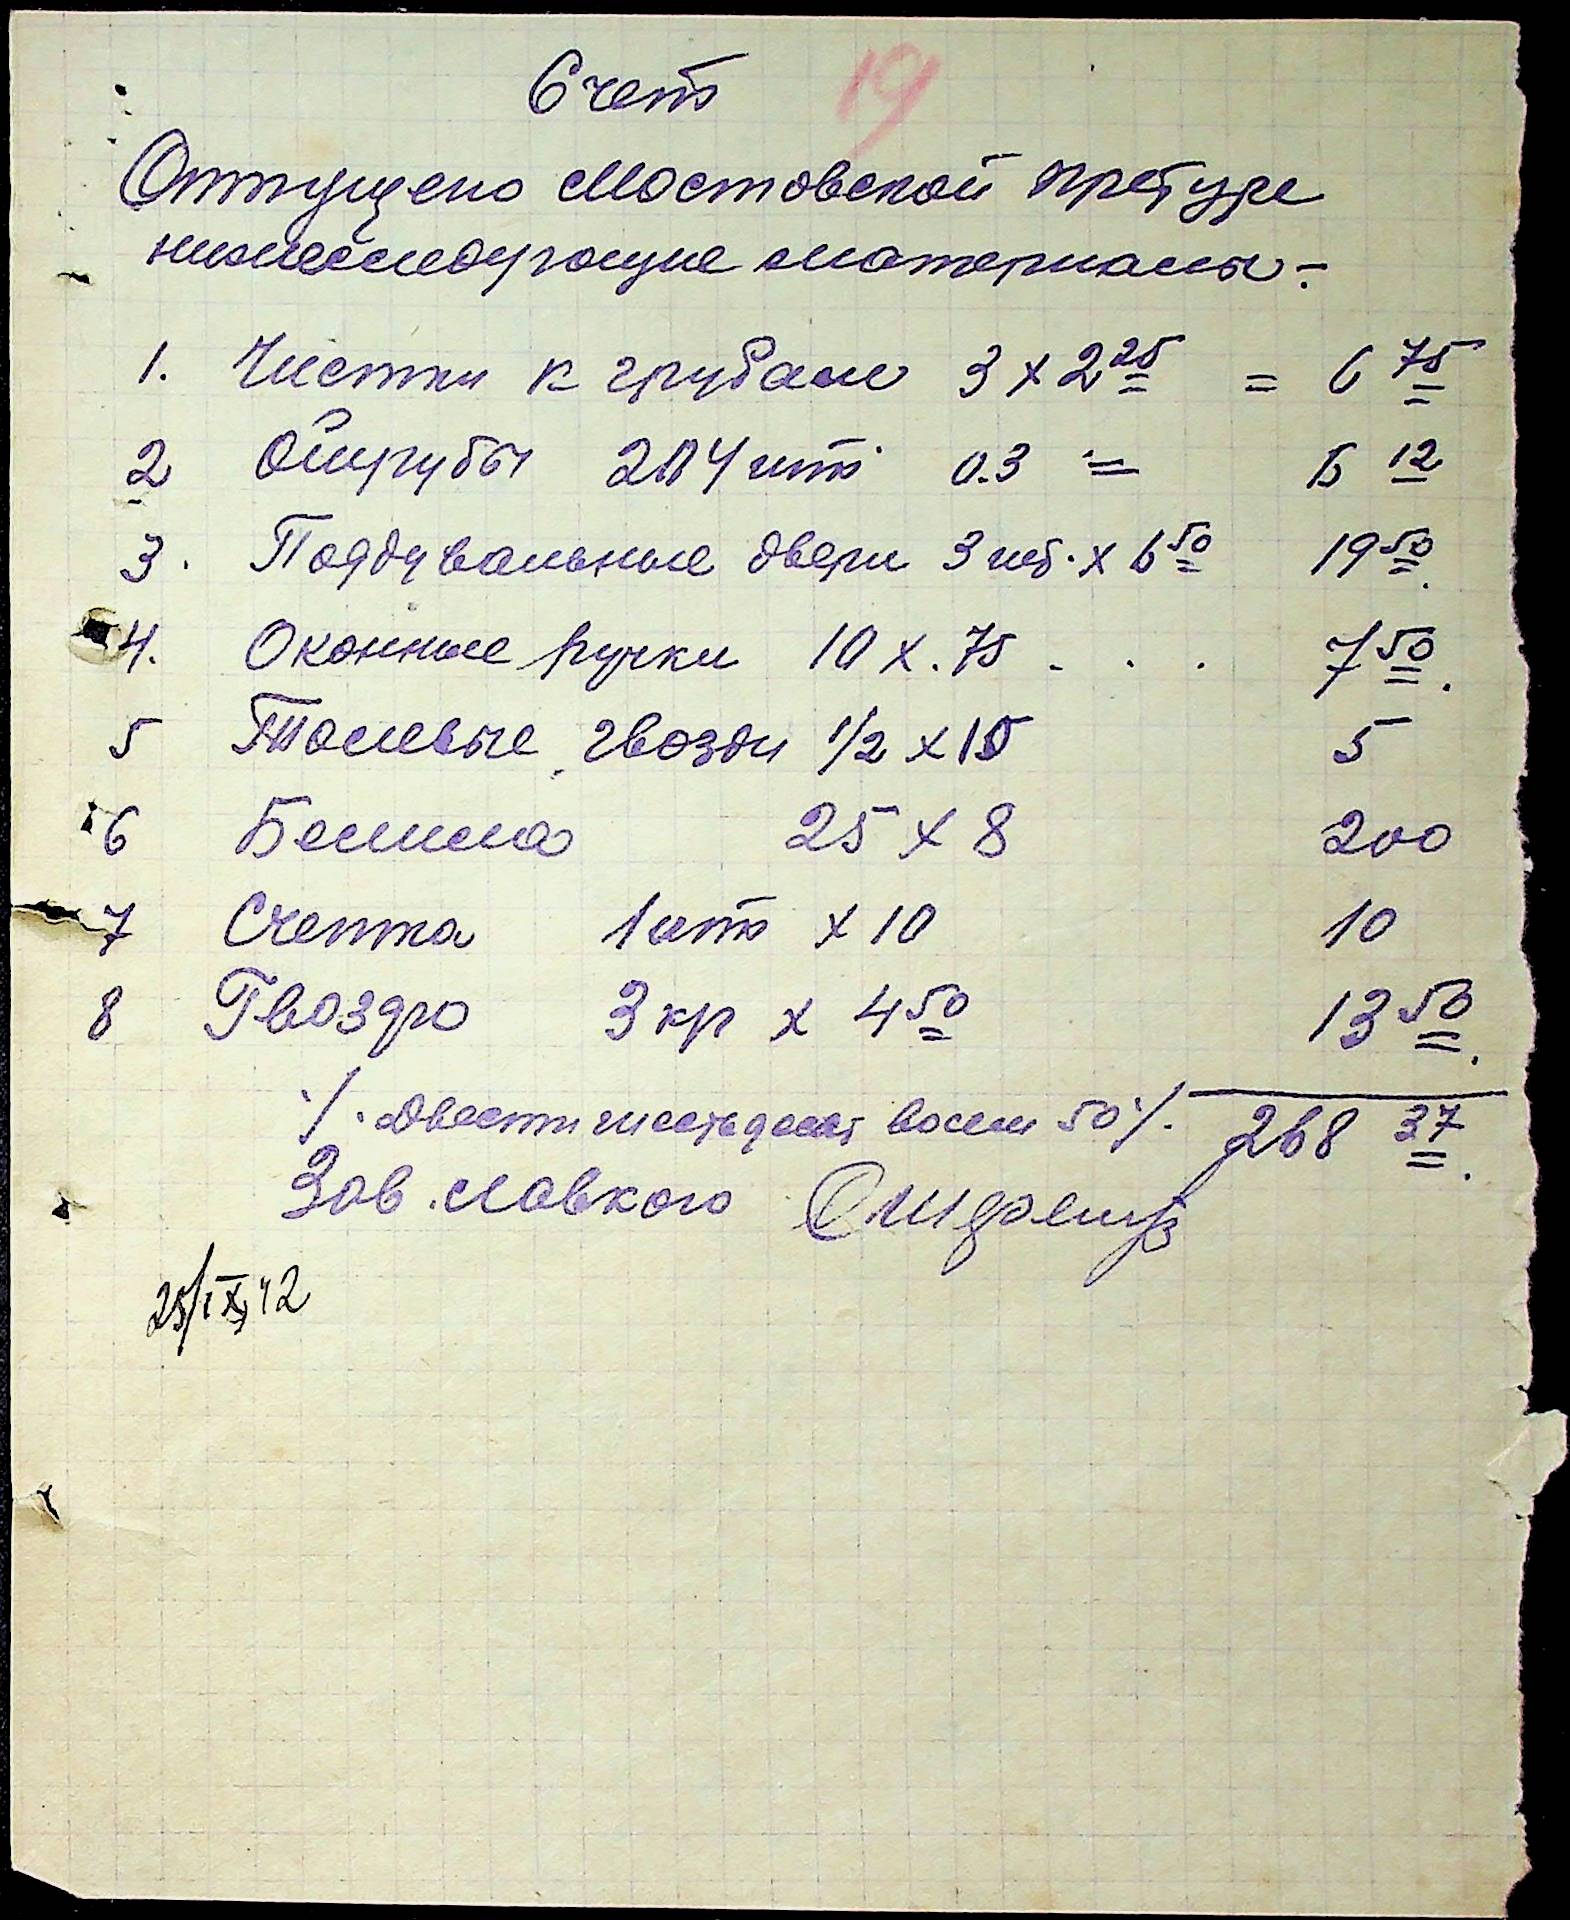 Счет 19
Отпущено Мостовской претуре
нижеследующие материалы:-
1. Чистки к грубам 3 x 2 25 = 6 75
2 204 шт 0.3 = 6 12
3. Поддувальные двери 3 шт. x 6 50 19 50.
4. Оконные ручки 10 x .75 . . . 7 50.
5 Толевые гвозди 1/2 x 10 5
6 Белила 25 x 8 200
7 Счетка 1 шт x 10 10
8 Гвоздю 3 кг x 4 50 13 50.
/. Двести шестьдесят восем 50 /. 268 37.
Зав. лавкою
25/IX 42